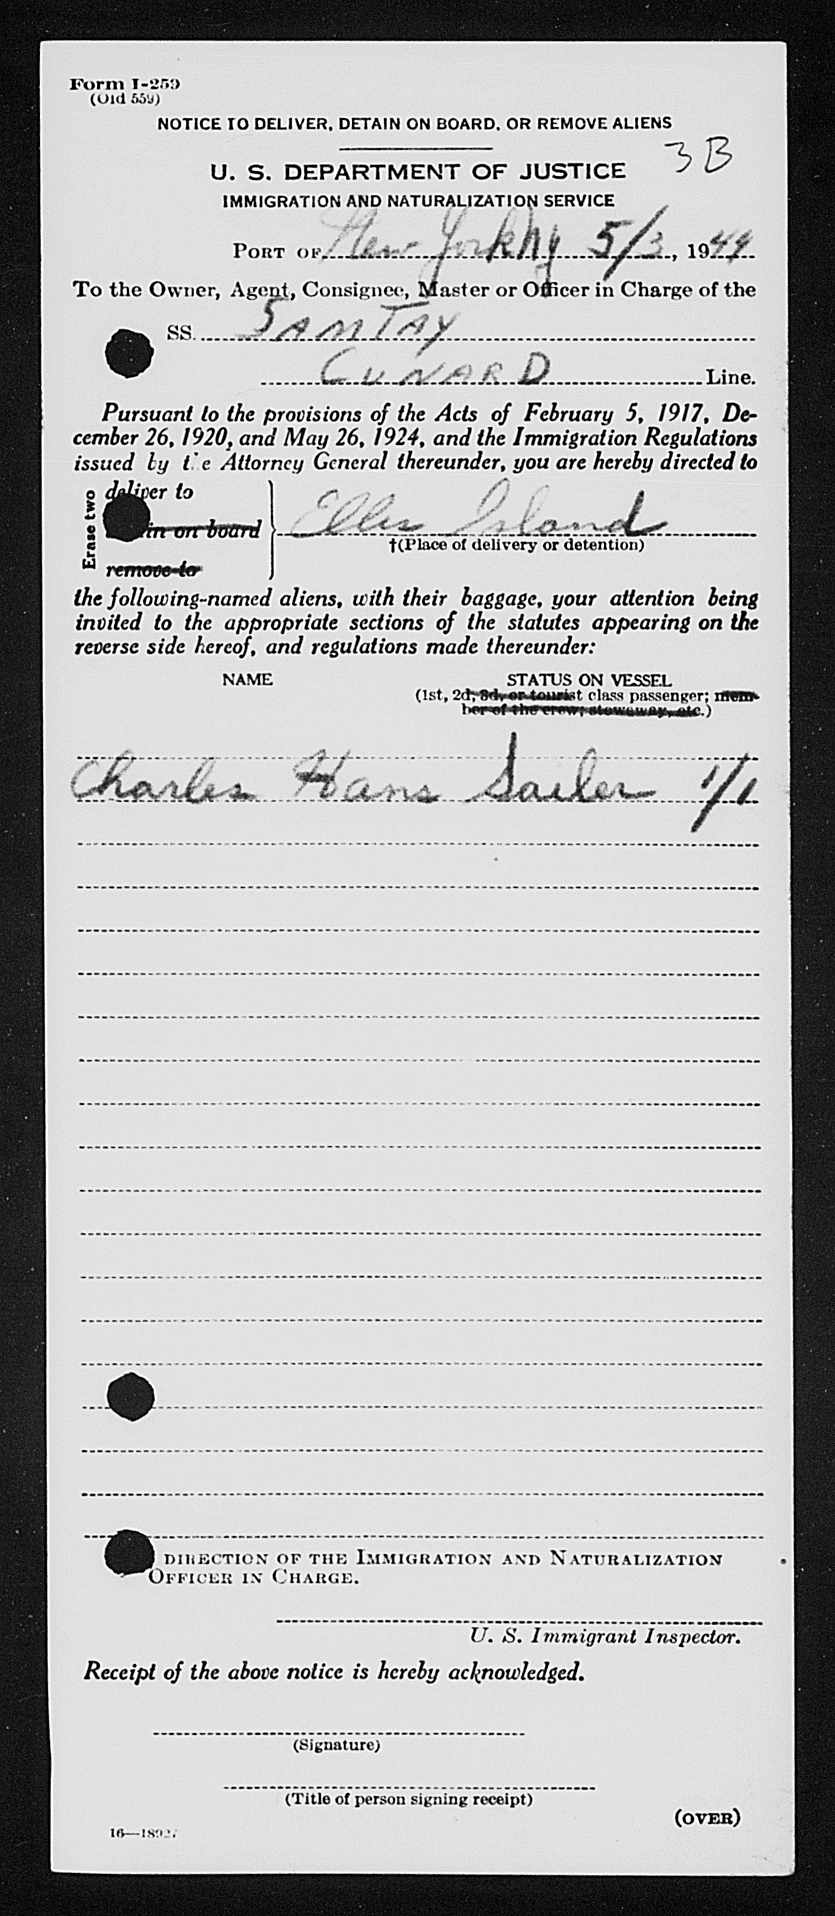 Form I-259
(Old 559)
NOTICE TO DELIVER, DETAIN ON BOARD, OR REMOVE ALIENS
3B
U. S. DEPARTMENT OF JUSTICE
IMMIGRATION AND NATURALIZATION SERVICE
PORT OF New York Ny 5/3, 1944
To the Owner, Agent, Consignee, Master or Officer in Charge of the
SS. SAMTAY
CUNARD Line.
Pursuant to the provisions of the Acts of February 5, 1917, De-
cember 26, 1920, and May 26, 1924, and the Immigration Regulations
issued by the Attorney General thereunder, you are hereby directed to
Erase two
deliver to
in on board
remove to
Ellis Island
†(Place of delivery or detention)
the following-named aliens, with their baggage, your attention being
invited to the appropriate sections of the statutes appearing on the
reverse side hereof, and regulations made thereunder:
NAME STATUS ON VESSEL
(1st, 2d, 3d, or tourist class passenger; mem-
ber of the crew; stowaway, etc.)
Charles Hans Sailer 1/1
DIRECTION OF THE IMMIGRATION AND NATURALIZATION
OFFICER IN CHARGE.
U. S. Immigrant Inspector.
Receipt of the above notice is hereby acknowledged.
(Signature)
(Title of person signing receipt)
(OVER)
16—18927